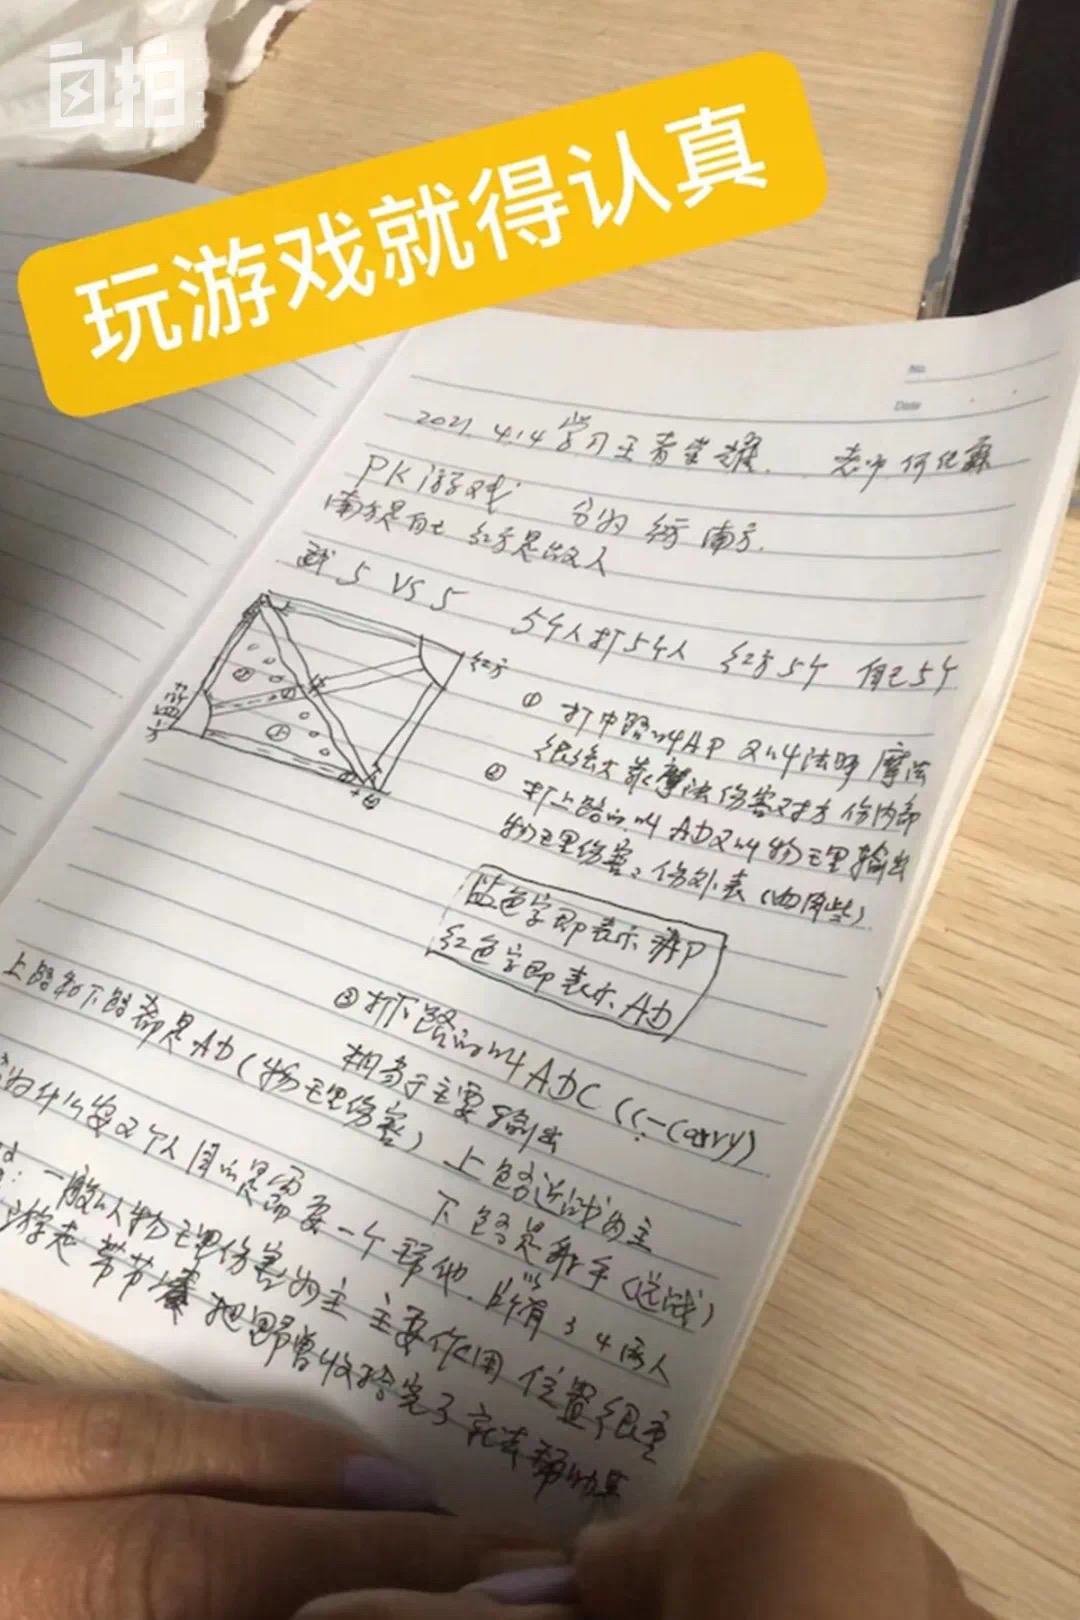 自拍
玩游戏就得认真
No.
Date
2021.4.14 学习王者荣耀. 老师 何
PK游戏 分为
是自己 红方是敌人
5 VS 5 5个人打5个人 红方5个 自己5个
红方
① 打中路叫AP 又叫法师 魔法
很强大 靠魔法伤害对方 伤内部
② 打上路的叫AD又叫物理输出
物理伤害, 伤外表(如肉些)
蓝色字即表示AP
红色字即表示AD
③ 打下路的叫ADC (C-Carry)
相当于主要输出
上路和下路都是AD(物理伤害) 上路近战为主
下路是射手(远战)
为什么安2个人 目的是需要一个帮他. 所以有3 4两人
一般以物理伤害为主 主要作用 位置很重
游走 带节奏 把野兽收拾完了 就去帮助其